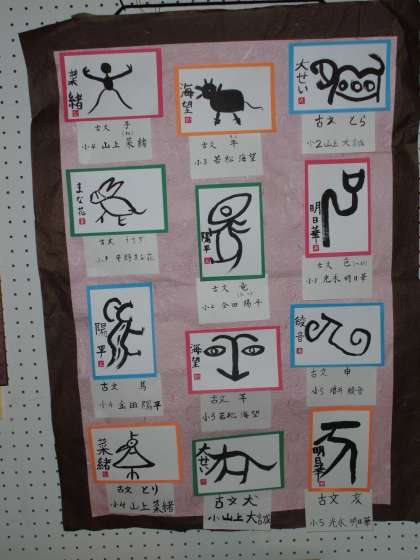 菜緒
古文 子
(ね)
小4 山上 菜緒
海望
古文 牛
小3 若松 海望
大せい
古文 とら
小2 山上 大誠
まな花
古文 うさぎ
陽平
古文 竜
小4 金田 陽平
明日華
古文
小5 光永 明日華
陽平
古文 馬
小4 金田 陽平
海望
古文 羊
小3 若松 海望
綾音
古文 申
小5 増井 綾音
菜緒
古文 とり
小4 山上 菜緒
大せい
古文 犬
小 山上 大誠
明日華
古文 亥
小5 光永 明日華